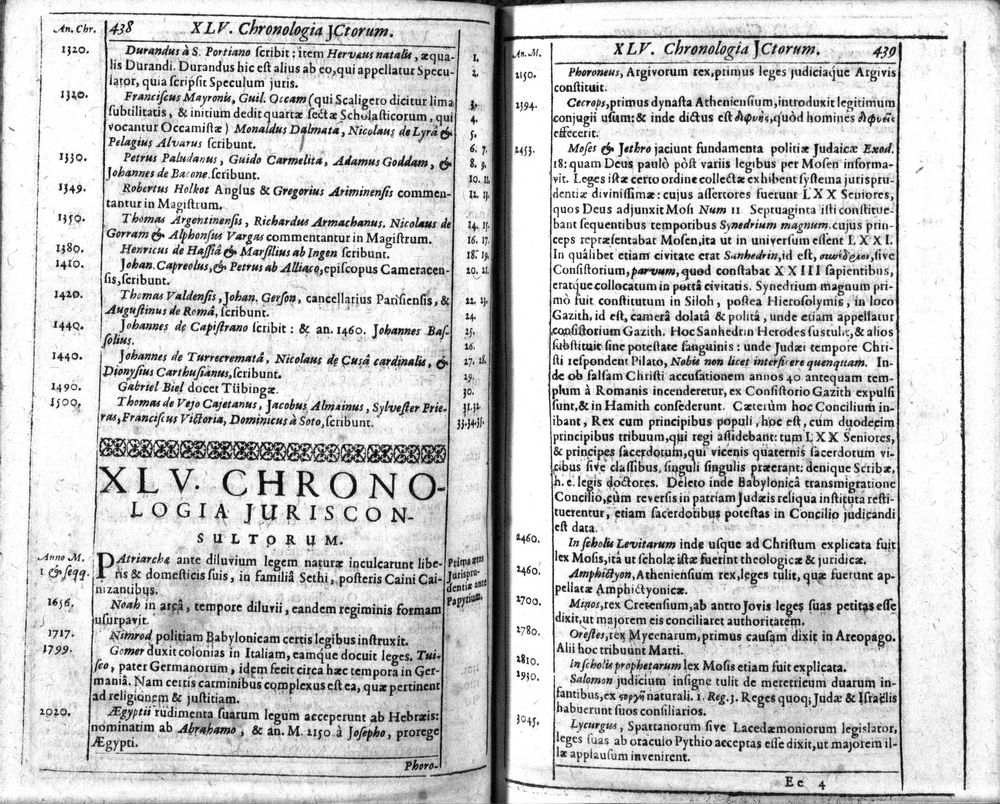 An. Chr. 438 XLV. Chronologia JCtorum.
1320. Durandus à S. Portiano scribit: item Hervæus natalis, æqua- 1.
lis Durandi. Durandus hic est alius ab eo, qui appellatur Specu- 2.
lator, quia scripsit Speculum juris.
1320. Franciscus Mayronis, Guil. Occam (qui Scaligero dicitur lima 3.
subtilitatis, & initium dedit quartæ sectæ Scholasticorum, qui 4.
vocantur Occamistæ) Monaldus Dalmata, Nicolaus de Lyrâ & 5.
Pelagius Alvarus scribunt. 6. 7.
1330. Petrus Paludanus, Guido Carmelita, Adamus Goddam, & 8. 9.
Johannes de Bacone scribunt. 10. 11.
1349. Robertus Holkot Anglus & Gregorius Ariminensis commen- 12. 13.
tantur in Magistrum.
1350. Thomas Argentinensis, Richardus Armachanus. Nicolaus de 14. 15.
Gorram & Alphonsus Vargas commentantur in Magistrum. 16. 17.
1380. Henricus de Hassiâ & Marsilius ab Ingen scribunt. 18. 19.
1410. Johan. Capreolus, & Petrus ab Alliaco, episcopus Cameracen- 20. 21.
sis, scribunt.
1420. Thomas Valdensis, Johan. Gerson, cancellarius Parisiensis, & 22. 23.
Augustinus de Româ, scribunt. 24.
1440. Johannes de Capistrano scribit: & an. 1460. Johannes Bas- 25.
solius. 26.
1440. Johannes de Turrecrematâ, Nicolaus de Cusâ cardinalis, & 27. 28.
Dionysius Carthusianus, scribunt. 29.
1490. Gabriel Biel docet Tübingæ. 30.
1500. Thomas de Vejo Cajetanus, Jacobus Almainus, Sylvester Prie- 31.32.
ras, Franciscus Victoria, Dominicus à Soto, scribunt. 33.34.35.
XLV. CHRONO-
LOGIA JURISCON-
SULTORUM.
Anno M. PAtriarchæ ante diluvium legem naturæ inculcarunt libe- Prima ætas
1 & seqq. ris & domesticis suis, in familiâ Sethi, posteris Caini Cai- Jurispru-
nizantibus. dentiæ ante
Papyrium.
1656. Noah in arcâ, tempore diluvii, eandem regiminis formam
usurpavit.
1717. Nimrod politiam Babylonicam certis legibus instruxit.
1799. Gomer duxit colonias in Italiam, eamque docuit leges. Tui-
sco, pater Germanorum, idem fecit circa hæc tempora in Ger-
maniâ. Nam certis carminibus complexus est ea, quæ pertinent
ad religionem & justitiam.
2020. Ægyptii rudimenta suarum legum acceperunt ab Hebræis:
nominatim ab Abrahamo, & an. M. 2150 à Josepho, prorege
Ægypti.
Phoro-
An. M. XLV. Chronologia JCtorum. 439
2150. Phoroneus, Argivorum rex, primus leges judiciaque Argivis
constituit.
2394. Cecrops, primus dynasta Atheniensium, introduxit legitimum
conjugii usum; & inde dictus est διφυὴς, quòd homines διφυεῖς
effecerit.
2453. Moses & Jethro jaciunt fundamenta politiæ Judaicæ Exod.
18: quam Deus paulò pòst variis legibus per Mosen informa-
vit. Leges istæ certo ordine collectæ exhibent systema jurispru-
dentiæ divinissimæ: cujus assertores fuerunt LXX Seniores,
quos Deus adjunxit Mosi Num 11 Septuaginta isti constitue-
bant sequentibus temporibus Synedrium magnum. cujus prin-
ceps repræsentabat Mosen, ita ut in universum essent LXXI.
In quâlibet etiam civitate erat Sanhedrin, id est, συνέδριον, sive
Consistorium, parvum, quod constabat XXIII sapientibus,
eratque collocatum in portâ civitatis. Synedrium magnum pri-
mò fuit constitutum in Siloh, postea Hierosolymis, in loco
Gazith, id est, camerâ dolatâ & politâ, unde etiam appellatur
consistorium Gazith. Hoc Sanhedrin Herodes sustulit, & alios
substituit sine potestate sanguinis: unde Judæi tempore Chri-
sti respondent Pilato, Nobis non licet interficere quenquam. In-
de ob falsam Christi accusationem annos 40 antequam tem-
plum à Romanis incenderetur, ex Consistorio Gazith expulsi
sunt, & in Hamith consederunt. Cæterùm hoc Concilium in-
ibant, Rex cum principibus populi, hoc est, cum duodecim
principibus tribuum, qui regi assidebant: tum LXX Seniores,
& principes sacerdotum, qui vicenis quaternis sacerdotum vi-
cibus sive classibus, singuli singulis præerant: denique Scribæ,
h. e. legis doctores. Deleto inde Babylonicâ transmigratione
Concilio, cùm reversis in patriam Judæis reliqua instituta resti-
tuerentur, etiam sacerdotibus potestas in Concilio judicandi
est data.
2460. In scholis Levitarum inde usque ad Christum explicata fuit
lex Mosis, ità ut scholæ istæ fuerint theologicæ & juridicæ.
2460. Amphictyon, Atheniensium rex, leges tulit, quæ fuerunt ap-
pellatæ Amphictyonicæ.
2700. Minos, rex Cretensium, ab antro Jovis leges suas petitas esse
dixit, ut majorem eis conciliaret authoritatem.
2780. Orestes, rex Mycenarum, primus causam dixit in Areopago.
Alii hoc tribuunt Marti.
2810. In scholis prophetarum lex Mosis etiam fuit explicata.
2930. Salomon judicium insigne tulit de meretricum duarum in-
fantibus, ex στοργῇ naturali. 1. Reg. 3. Reges quoq; Judæ & Israëlis
habuerunt suos consiliarios.
3045. Lycurgus, Spartanorum sive Lacedæmoniorum legislator,
leges suas ab oraculo Pythio acceptas esse dixit, ut majorem il-
læ applausum invenirent.
Ee 4